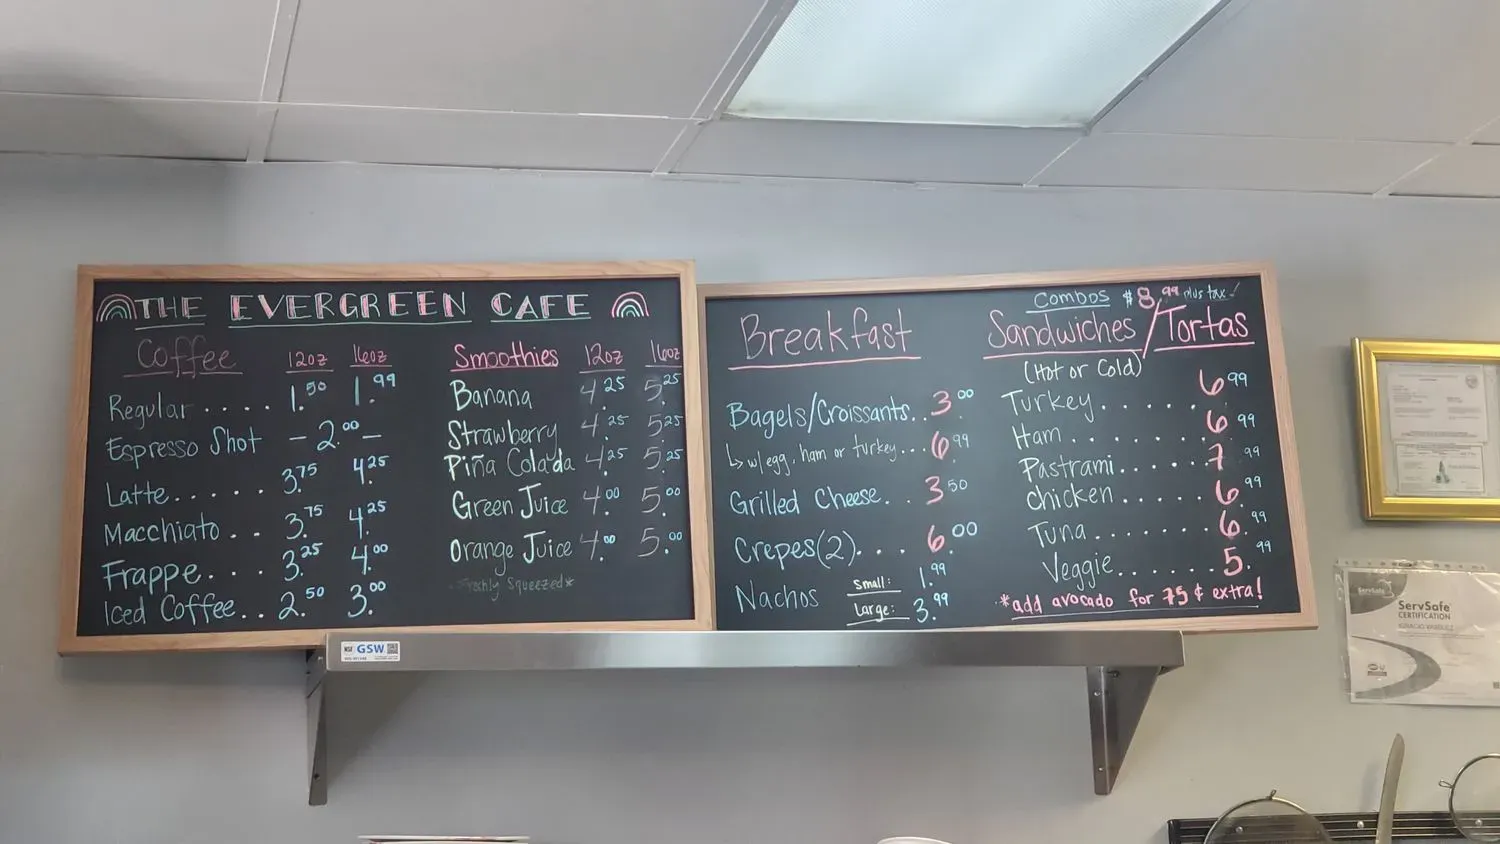 THE EVERGREEN CAFE
Coffee 12oz 16oz
Regular .... 1.50 1.99
Espresso Shot - 2.00 -
Latte..... 3.75 4.25
Macchiato .. 3.75 4.25
Frappe... 3.25 4.00
Iced Coffee.. 2.50 3.00
Smoothies 12oz 16oz
Banana 4.25 5.25
Strawberry 4.25 5.25
Piña Colada 4.25 5.25
Green Juice 4.00 5.00
Orange Juice 4.00 5.00
Freshly Squeezed*
Breakfast
Bagels/Croissants.. 3.00
↳ w/ egg, ham or turkey... 6.99
Grilled Cheese.. 3.50
Crepes(2)... 6.00
Nachos Small: 1.99
Large: 3.99
Combos $8.99 plus tax!
Sandwiches/Tortas
(Hot or Cold)
Turkey...... 6.99
Ham....... 6.99
Pastrami..... 7.99
chicken..... 6.99
Tuna....... 6.99
Veggie...... 5.99
*add avocado for 75¢ extra!
NSF GSW
ServSafe
ServSafe
CERTIFICATION